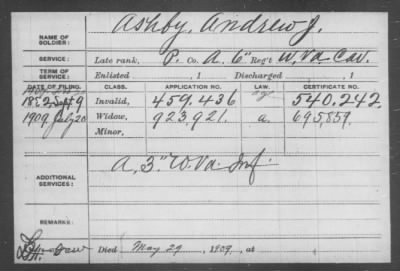 NAME OF SOLDIER: Ashby, Andrew J.
SERVICE: Late rank, P. Co. A. 6" Reg't W. Va Cav.
TERM OF SERVICE: Enlisted , 1 Discharged , 1
DATE OF FILING. CLASS. APPLICATION NO. LAW. CERTIFICATE NO.
1882 Sept 9 Invalid, 459.436 540.242.
1909 July 20 Widow, 923,921. a. 695,859.
Minor,
ADDITIONAL SERVICES: A, 3" W. Va. Inf.
REMARKS:
Died May 29, 1909, at